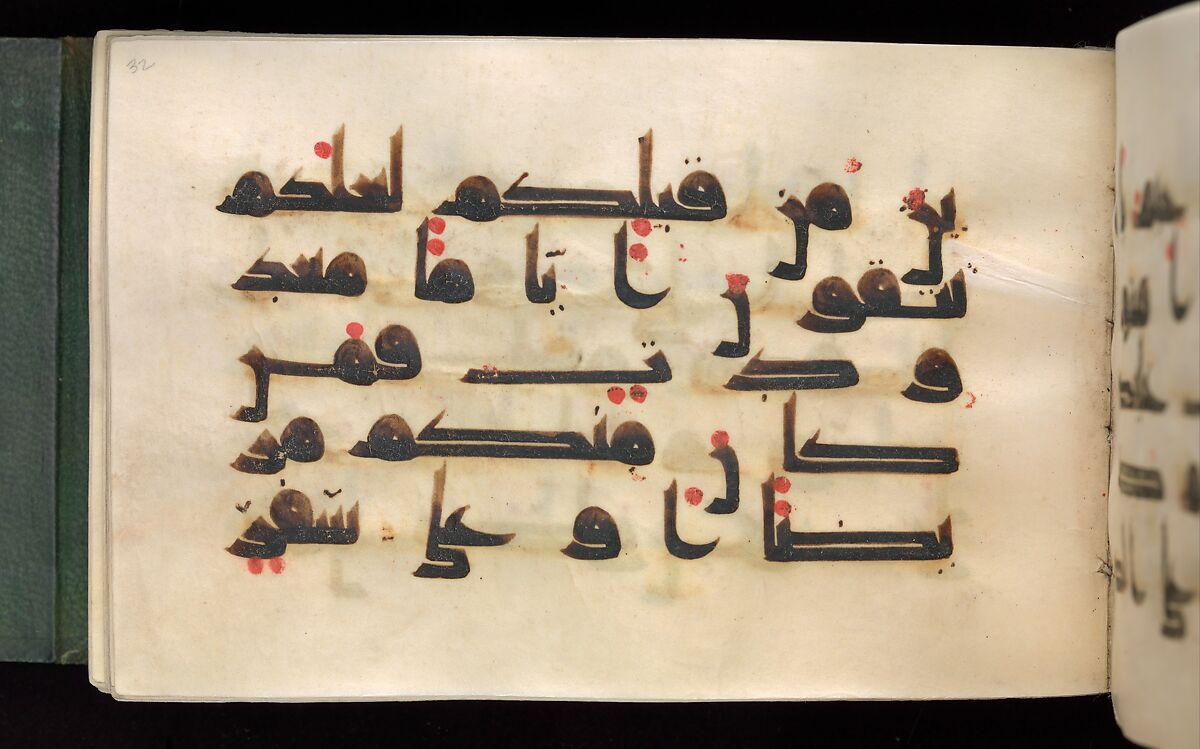 32
ين من قبلكم لعلكم
تتقون اياما معد
ودت فمن
كان منكم مر
يضا او على سفر